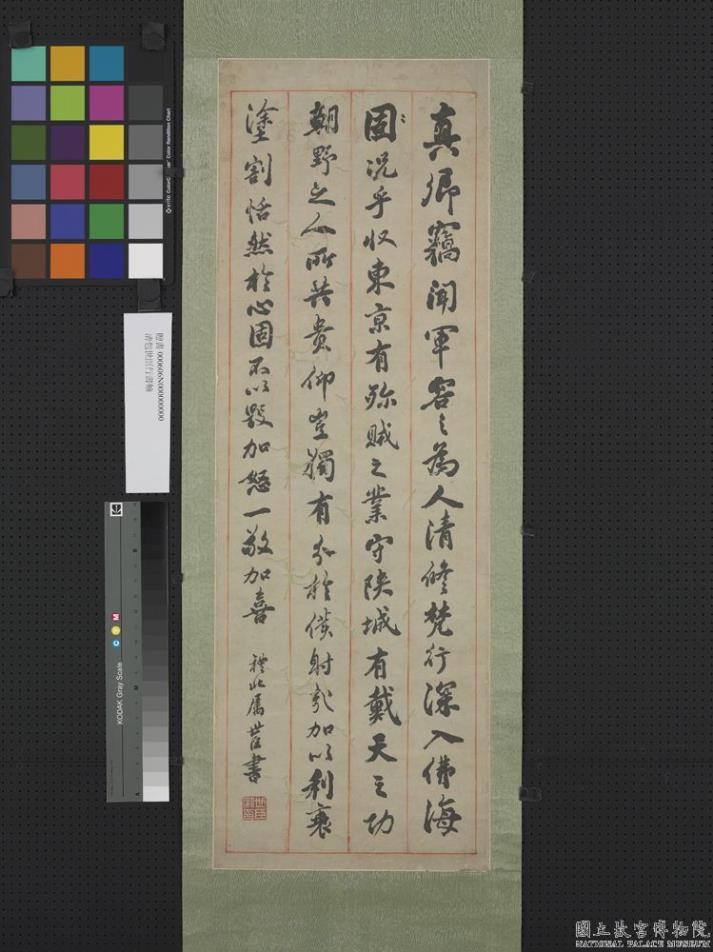 真卿竊聞軍容之為人清修梵行深入佛海
固況乎收東京有殄賊之業守陝城有戴天之功
朝野之人所共貴仰豈獨有分於僕射哉加以利衰
塗割恬然於心固不以毀加怒一敬加喜
禮北屬世臣書
贈書 000606N000000000
清包世臣行書軸
KODAK Gray Scale
C
Y
M
國立故宮博物院
NATIONAL PALACE MUSEUM